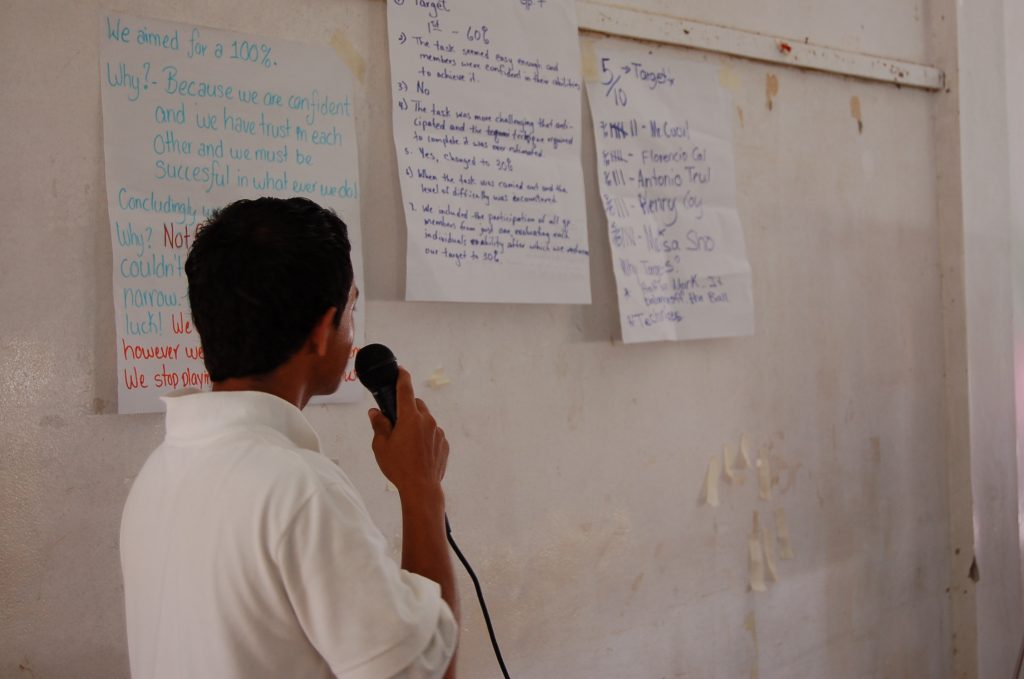 We aimed for a 100%.
Why? - Because we are confident
and we have trust in each
Other and we must be
Succesful in what ever we do!
Concludingly
Why? Not
couldn't
narrow.
luck! We
however we
We stop
1) Target
1st - 60%
2) The task seemed easy enough and
members were confident in their abilities
to achieve it.
3) No
4) The task was more challenging that anti-
cipated and the technique required
to complete it was
5. Yes, changed to 30%
6) When the task was carried out and the
level of difficulty was encountered.
7. We included the participation of all gp.
members from just one, evaluating each
individuals ability after which we
our target to 30%.
5/10 → Target
- Mr Cucul
- Florencio Cal
- Antonio Teul
- Henry Coy
Why
Work
the Ball